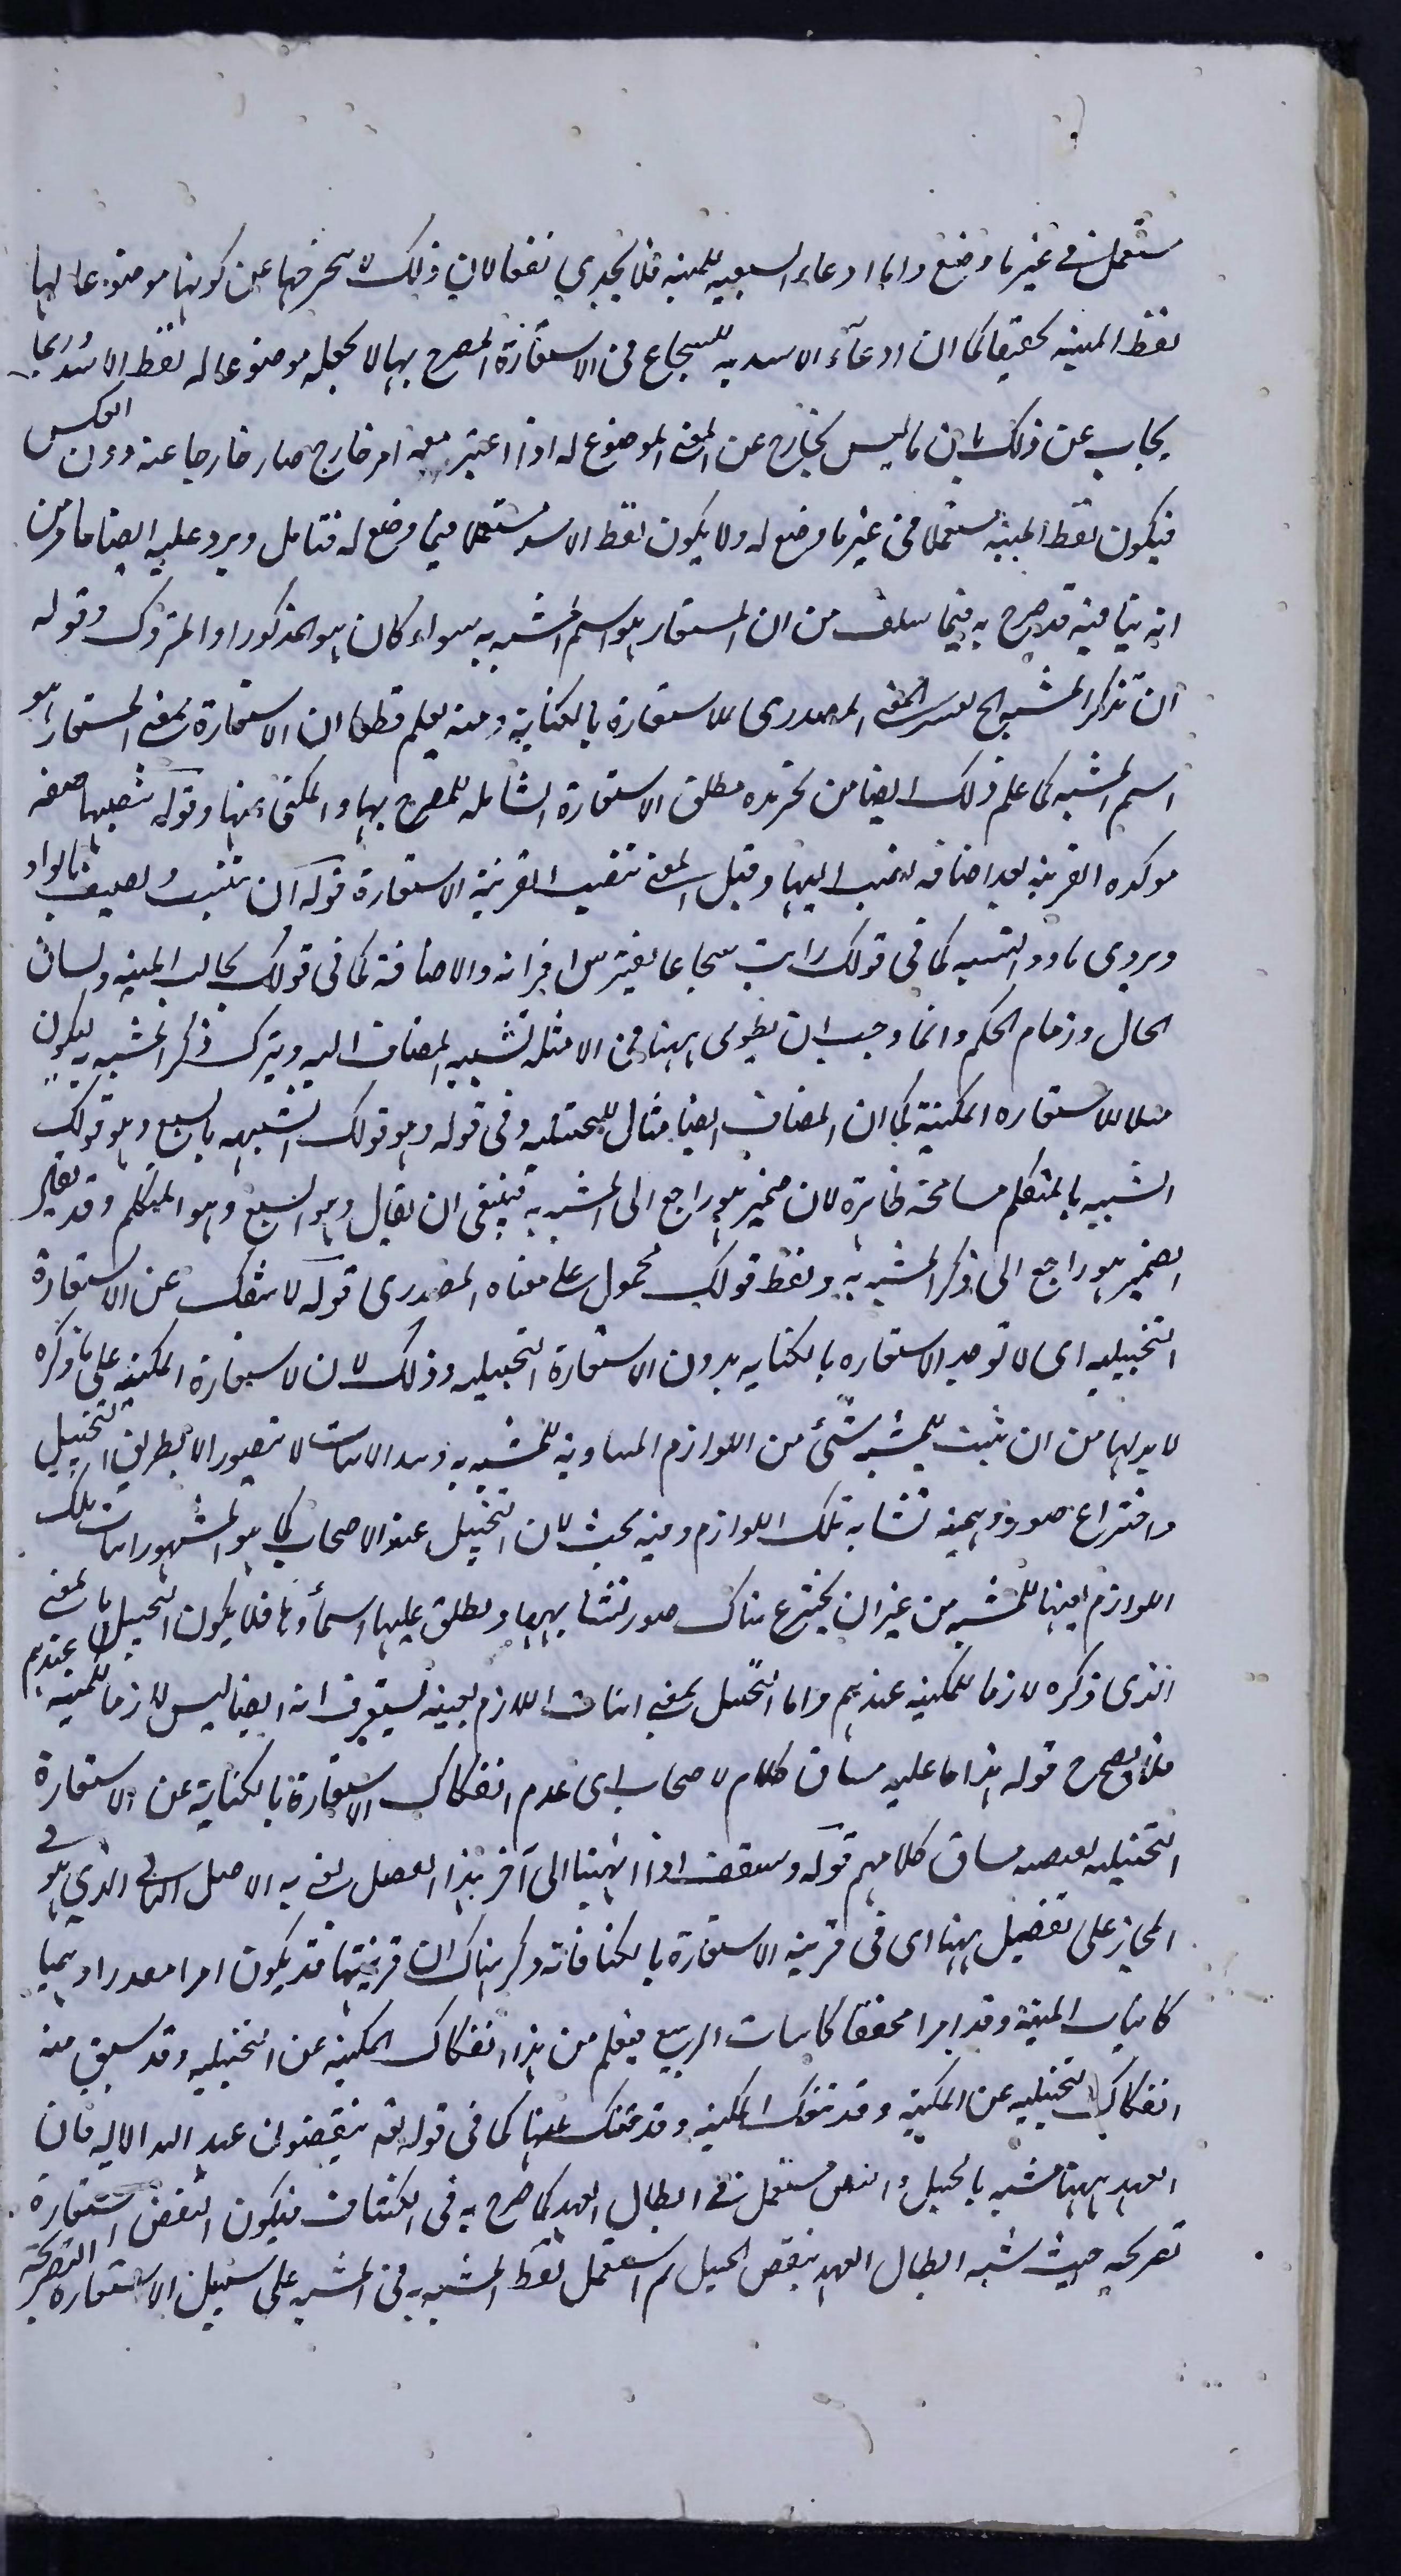 مستعمل في غير ما وضع واما ادعاء السبعيه للمنيه فلا يجدي نفعا لان ذلك لا يخرجها عن كونها موضوعا لها
لفظ المنيه تحقيقا كما ان ادعآء الاسديه للشجاع في الاستعارة المصرح بها لا يجعله موضوعا له لفظ الاسد وربما
يجاب عن ذلك بان ما ليس بخارج عن المعنى الموضوع له اذا اعتبر معه امر خارج صار خارجا عنه دون العكس
فيكون لفظ المنيه مستعملا في غير ما وضع له ولا يكون لفظ الاسد مستعملا فيما وضع له فتامل ويرد عليه ايضا ما مر من
انه ينافيه قد صرح به فيما سلف من ان المستعار هو اسم المشبه به سواء كان هو المذكور او المتروك وقوله
ان تذكر المشبه الخ تفسير للمعنى المصدرى للاستعارة بالكناية ومنه يعلم قطعا ان الاستعارة بمعنى المستعار هو
اسم المشبه كما علم ذلك ايضا من تحريره مطلق الاستعارة الشامله للمصرح بها والمكنى عنها وقوله تنصبها صفه
موكده القرينه بعد اضافه نصب اليها وقيل المعنى تنصب القرينة الاستعارة قوله ان تنسب وتضيف بالواو
ويروى باو والنسبه كما فى قولك رايت شجاعا يفترس اقرانه والاضافة كما فى قولك مخالب المنيه ولسان
الحال وزمام الحكم وانما وجب ان يطوى ههنا في الامثله تشبيه المضاف اليه ويترك ذكر المشبه به ليكون
مثالا للاستعاره المكنية كما ان المضاف ايضا مثال للتخييليه وفى قوله وهو قولك الشبيهه بالسبع وهو قولك
الشبيه بالمتكلم مسامحة ظاهرة لان ضمير هو راجع الى المشبه به فينبغى ان يقال وهو السبع وهو المتكلم وقد يقال
الضمير هو راجع الى ذكر المشبه به ولفظ قولك محمول على معناه المصدرى قوله لا تنفك عن الاستعارة
التخييليه اى لا توجد الاستعاره بالكنايه بدون الاستعارة التخييليه وذلك لان الاستعارة المكنيه على ما ذكره
لا بد لها من ان يثبت للمشبه شئ من اللوازم المساوية للمشبه به وهذا الاثبات لا يتصور الا بطريق التخييل
واختراع صورة وهميه تشابه تلك اللوازم وفيه بحث لان التخييل عند الاصحاب كما هو المشهور اثبات تلك
اللوازم بعينها للمشبه من غير ان يخترع هناك صور تشابهها ويطلق عليها اسمآؤها فلا يكون التخييل بالمعنى
الذى ذكره لازما للمكنيه عندهم واما التخييل بمعنى اثبات اللازم بعينه فستعرف انه ايضا ليس لازما للمكنيه عندهم
فلا يصح قوله هذا ما عليه مساق كلام الاصحاب اى عدم انفكاك الاستعارة بالكناية عن الاستعارة
التخييليه يقتضيه مساق كلامهم قوله وستقف اذا انتهينا الى آخر هذا الفصل يعنى به الاصل الثانى الذي هو في
المجاز على تفصيل ههنا اى فى قرينه الاستعارة بالكناية فانه ذكر هناك ان قرينتها قد يكون امرا مقدرا وهميا
كانياب المنية وقد امرا محققا كانبات الربيع فيعلم من هذا انفكاك المكنيه عن التخييليه وقد سبق منه
انفكاك التخييليه عن المكنية وقد تنفك المكنيه وقد تنفك عنها كما فى قوله تعه ينقضون عهد الله الايه فان
العهد ههنا مشبه بالحبل والنقض مستعمل في ابطال العهد كما صرح به فى الكشاف فيكون النقض استعارة
تصريحيه حيث شبه ابطال العهد بنقض الحبل ثم استعمل لفظ المشبه به في المشبه على سبيل الاستعاره التصريحيه